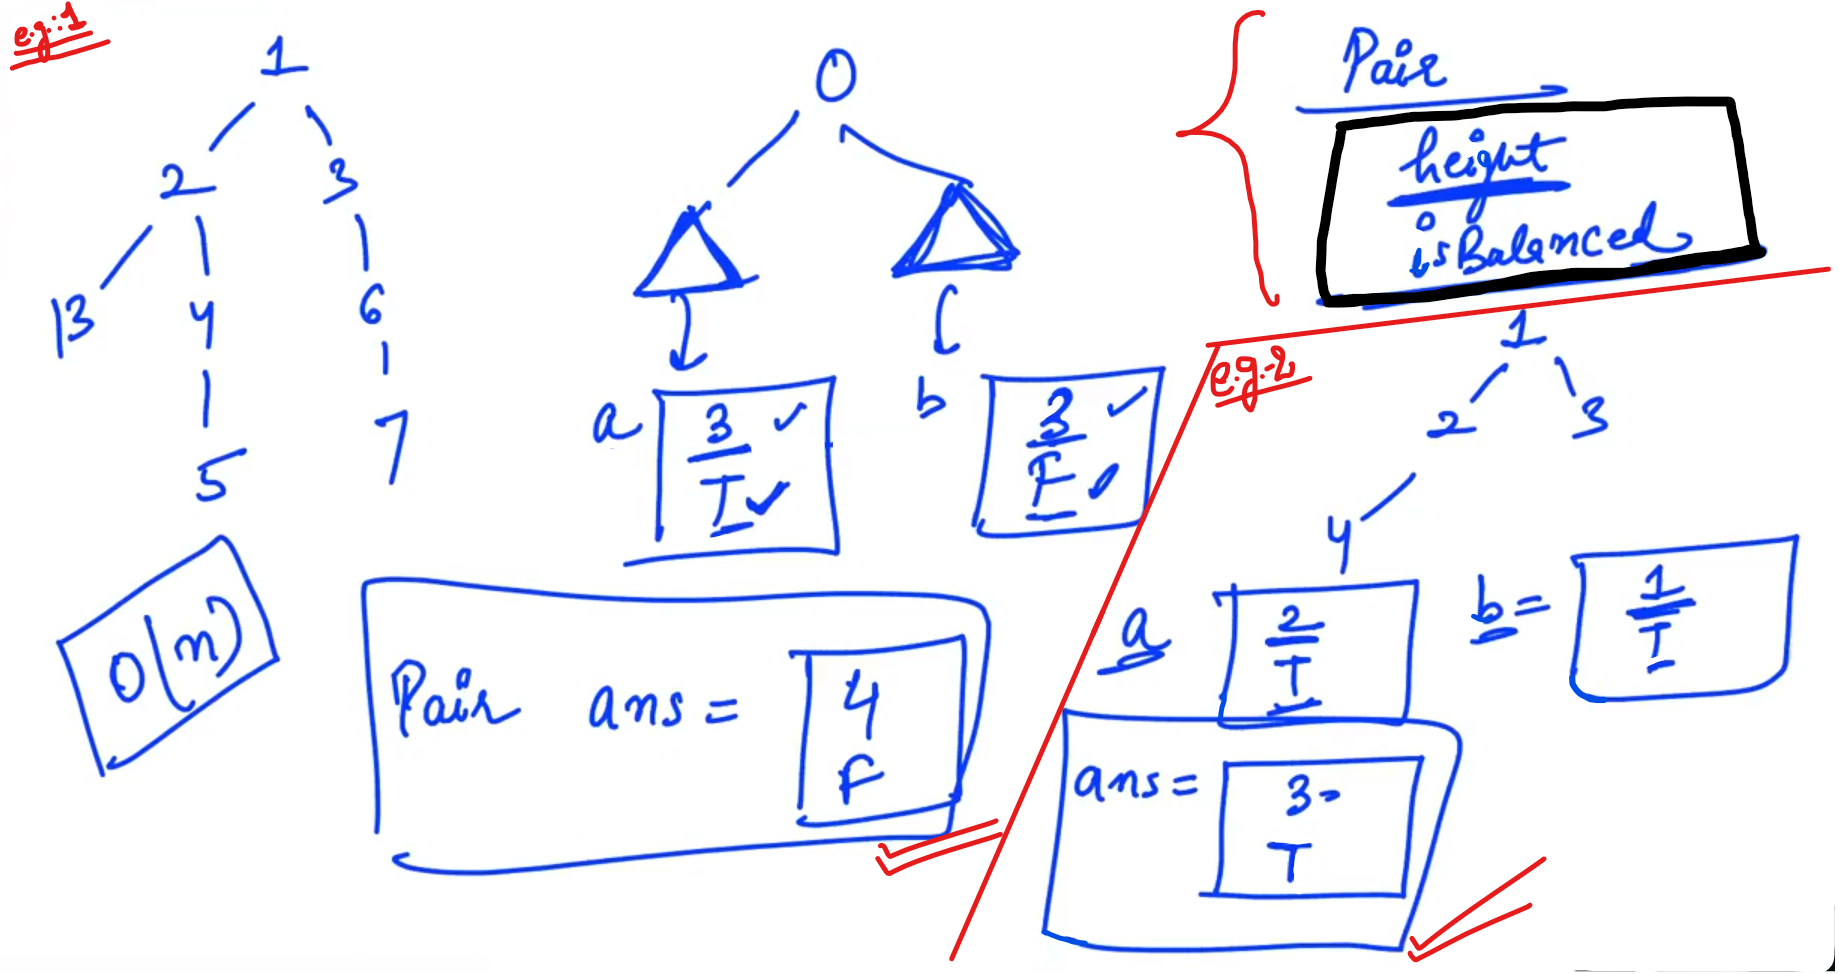 e.g:1
1
2 3
13 4 6
5 7
O(n)
O
a 3 T
b 3 F
Pair ans = 4 F
Pair
height
isBalanced
e.g-2
1
2 3
4
a 2 T
b = 1 T
ans = 3 T